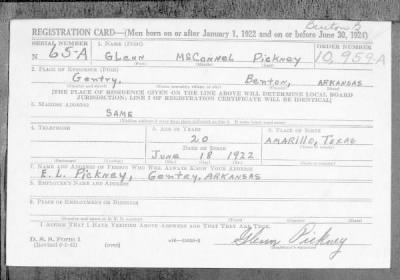 Benton 3
REGISTRATION CARD—(Men born on or after January 1, 1922 and on or before June 30, 1924)
SERIAL NUMBER 1. NAME (Print) ORDER NUMBER
N 65-A Glenn McConnel Pickney 10,959-A
2. PLACE OF RESIDENCE (Print)
Gentry, Benton, ARKANSAS
[THE PLACE OF RESIDENCE GIVEN ON THE LINE ABOVE WILL DETERMINE LOCAL BOARD
JURISDICTION; LINE 2 OF REGISTRATION CERTIFICATE WILL BE IDENTICAL]
3. MAILING ADDRESS
SAME
4. TELEPHONE 5. AGE IN YEARS 6. PLACE OF BIRTH
20 AMARILLO, TEXAS
DATE OF BIRTH
June 18 1922
7. NAME AND ADDRESS OF PERSON WHO WILL ALWAYS KNOW YOUR ADDRESS
E.L. Pickney, Gentry, ARKANSAS
8. EMPLOYER'S NAME AND ADDRESS
9. PLACE OF EMPLOYMENT OR BUSINESS
I AFFIRM THAT I HAVE VERIFIED ABOVE ANSWERS AND THAT THEY ARE TRUE.
D. S. S. FORM 1
(Revised 6-1-42)
Glenn Pickney